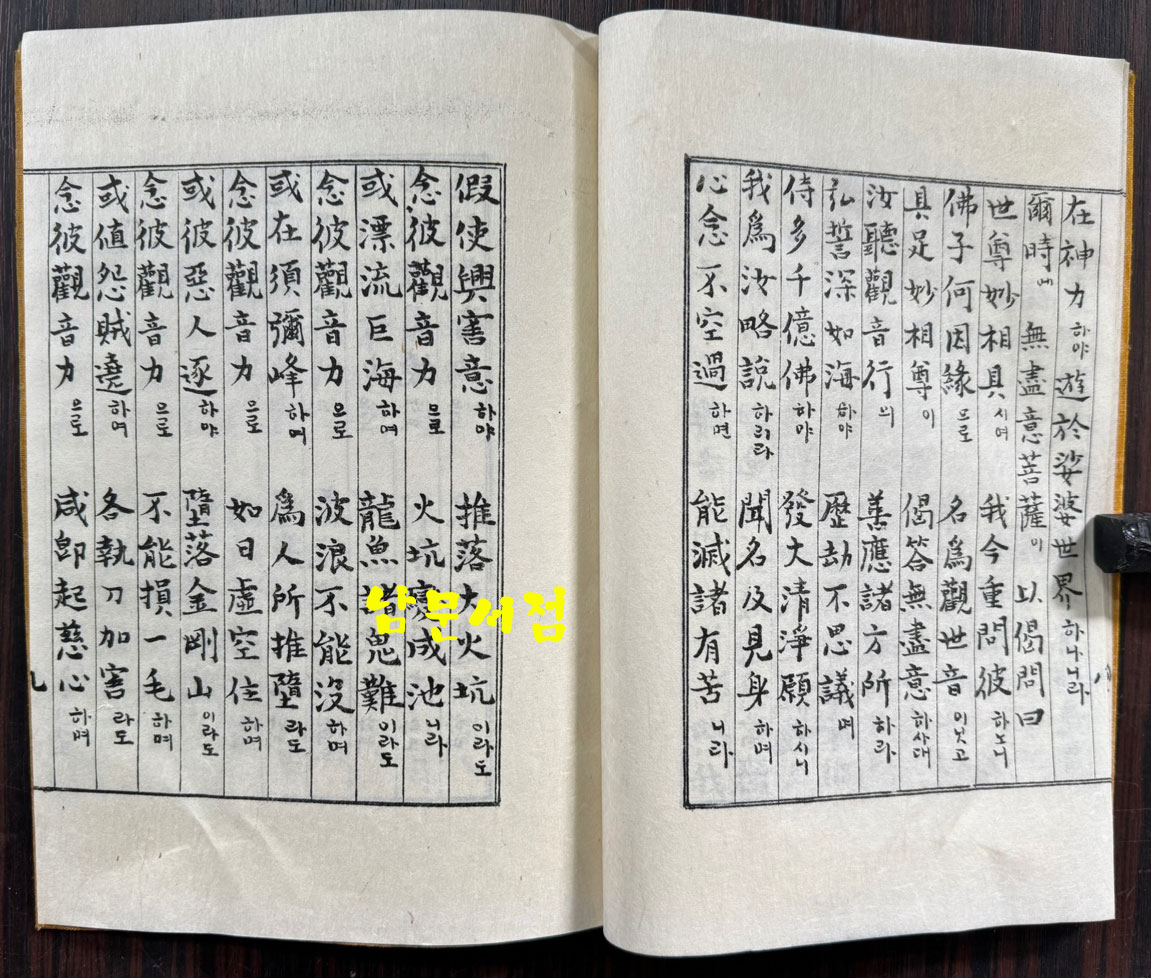 在神力하야遊於娑婆世界하나니라
爾時에 無盡意菩薩이 以偈問曰
世尊妙相具시여 我今重問彼하노니
佛子何因緣으로 名爲觀世音이닛고
具足妙相尊이 偈答無盡意하사대
汝聽觀音行의 善應諸方所하라
弘誓深如海하야 歷劫不思議며
侍多千億佛하야 發大清淨願하시니
我爲汝略說하리라 聞名及見身하며
心念不空過하면 能滅諸有苦니라
八
假使興害意하야 推落大火坑이라도
念彼觀音力으로 火坑變成池니라
或漂流巨海하며 龍魚諸鬼難이라도
念彼觀音力으로 波浪不能沒하며
或在須彌峰하며 爲人所推墮라도
念彼觀音力으로 如日虛空住하며
或彼惡人逐하야 墮落金剛山이라도
念彼觀音力으로 不能損一毛하며
或值怨賊遶하며 各執刀加害라도
念彼觀音力으로 咸卽起慈心하며
九
남문서점